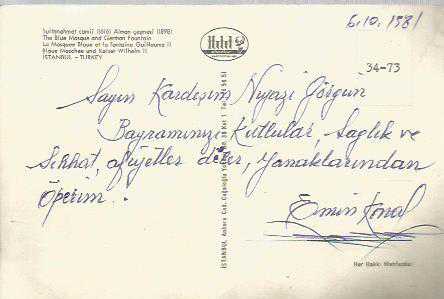 6.10.1981
Sultanahmet camii (1616) Alman çeşmesi (1898)
The Blue Mosque and German Fountain
La Mosquée Bleue et la fontaine Guillaume II
Blaue Moschee und Kaiser Wilhelm II
İSTANBUL - TURKEY
34-73
Sayın Kardeşim Niyazi Görgün
Bayramınızı Kutlular, Sağlık ve
Sıhhat, afiyetler diler, yanaklarından
öperim.
Emin Konal
İSTANBUL, Ankara Cad. Cağaloğlu
Her Hakkı Mahfuzdur